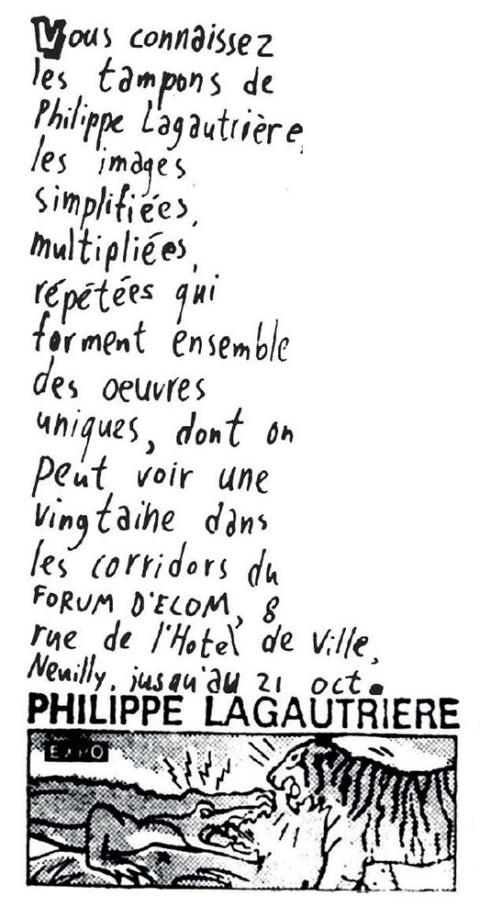 Vous connaissez
les tampons de
Philippe Lagautrière,
les images
simplifiées,
multipliées,
répétées qui
forment ensemble
des oeuvres
uniques, dont on
peut voir une
vingtaine dans
les corridors du
FORUM D'ECOM, 8
rue de l'Hotel de Ville,
Neuilly, jusqu'au 21 oct.
PHILIPPE LAGAUTRIERE